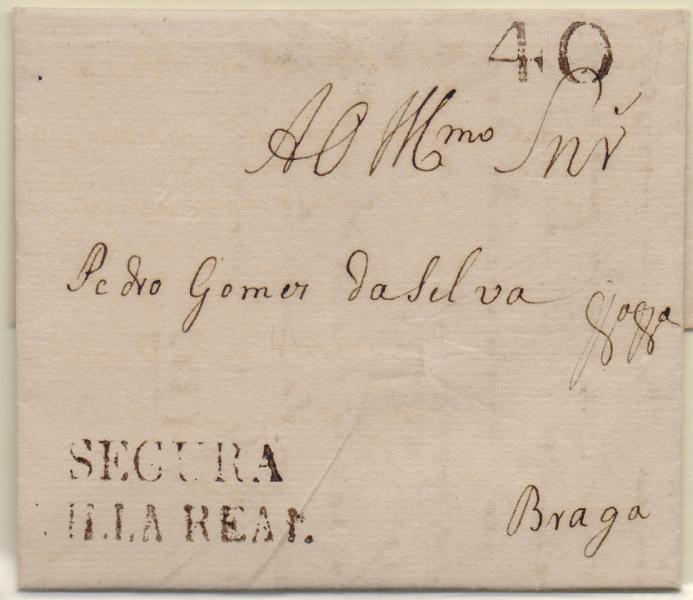 40
AO Illmo Snr
Pedro Gomes da Silva
SEGURA
ILLA REAL.
Braga